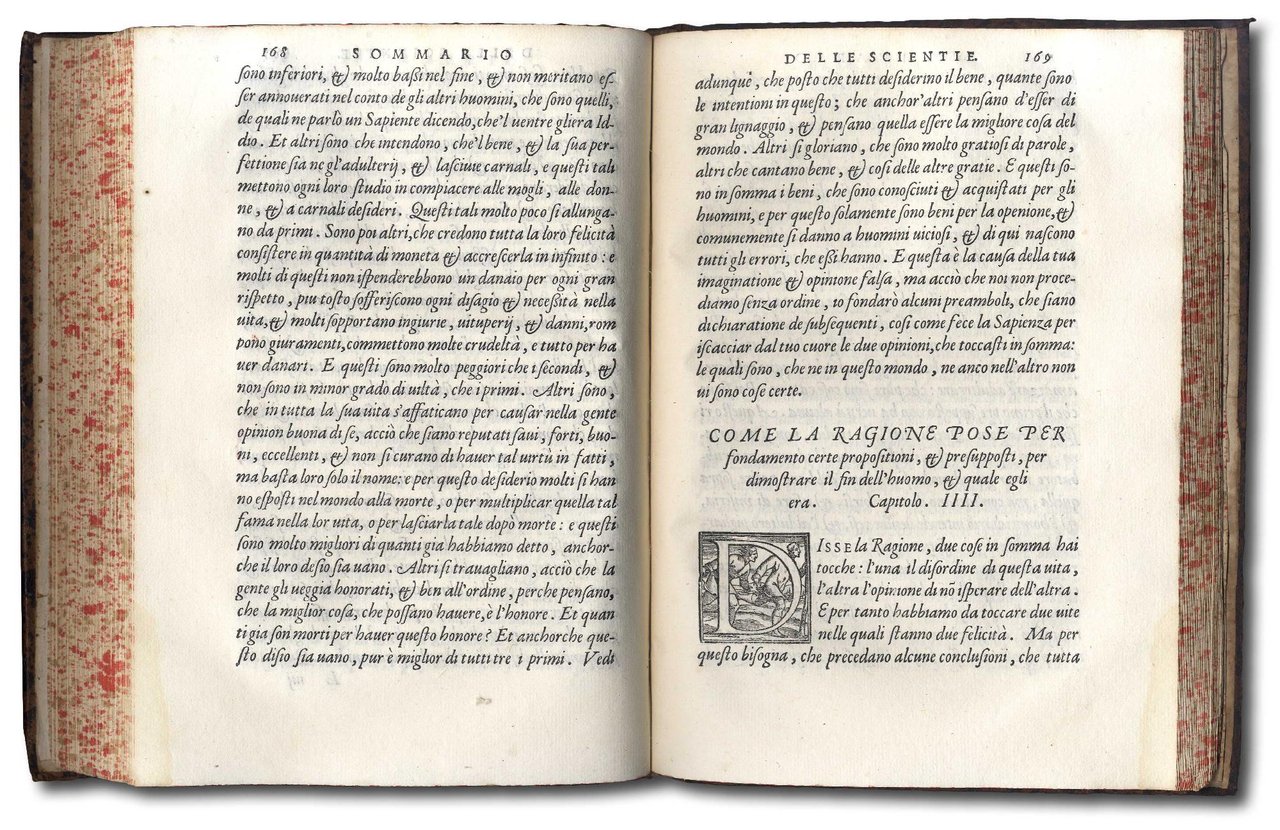 168 SOMMARIO
sono inferiori, & molto baßi nel fine, & non meritano es-
ser annoverati nel conto de gli altri huomini, che sono quelli,
de quali ne parlò un Sapiente dicendo, che'l uentre gliera Id-
dio. Et altri sono che intendono, che'l bene, & la sua per-
fettione sia ne gl'adulterij, & lasciuie carnali, e questi tali
mettono ogni loro studio in compiacere alle mogli, alle don-
ne, & a carnali desideri. Questi tali molto poco si allunga-
no da primi. Sono poi altri, che credono tutta la loro felicità
consistere in quantità di moneta & accrescerla in infinito: e
molti di questi non ispenderebbono un danaio per ogni gran
rispetto, piu tosto sofferiscono ogni disagio & neceßità nella
uita, & molti sopportano ingiurie, uituperij, & danni, rom
pono giuramenti, commettono molte crudeltà, e tutto per ha
uer danari. E questi sono molto peggiori che i secondi, &
non sono in minor grado di uiltà, che i primi. Altri sono,
che in tutta la sua uita s'affaticano per causar nella gente
opinion buona di se, acciò che siano reputati saui, forti, buo-
ni, eccellenti, & non si curano di hauer tal uirtù in fatti,
ma basta loro solo il nome: e per questo desiderio molti si han
no esposti nel mondo alla morte, o per multiplicar quella tal
fama nella lor uita, o per lasciarla tale dopò morte: e questi
sono molto migliori di quanti gia habbiamo detto, anchor-
che il loro desio sia uano. Altri si trauagliano, acciò che la
gente gli ueggia honorati, & ben all'ordine, perche pensano,
che la miglior cosa, che possano hauere, è l'honore. Et quan
ti gia son morti per hauer questo honore? Et anchorche que-
sto disio sia uano, pur è miglior di tutti tre i primi. Vedi
DELLE SCIENTIE. 169
adunque, che posto che tutti desiderino il bene, quante sono
le intentioni in questo; che anchor'altri pensano d'esser di
gran lignaggio, & pensano quella essere la migliore cosa del
mondo. Altri si gloriano, che sono molto gratiosi di parole,
altri che cantano bene, & cosi delle altre gratie. E questi so-
no in somma i beni, che sono conosciuti & acquistati per gli
huomini, e per questo solamente sono beni per la openione, &
comunemente si danno a huomini uiciosi, & di qui nascono
tutti gli errori, che eßi hanno. E questa è la causa della tua
imaginatione & opinione falsa, ma acciò che noi non proce-
diamo senza ordine, io fondarò alcuni preamboli, che siano
dichiaratione de subsequenti, cosi come fece la Sapienza per
iscacciar dal tuo cuore le due opinioni, che toccasti in somma:
le quali sono, che ne in questo mondo, ne anco nell'altro non
ui sono cose certe.
COME LA RAGIONE POSE PER
fondamento certe propositioni, & presupposti, per
dimostrare il fin dell'huomo, & quale egli
era. Capitolo. IIII.
DISSE la Ragione, due cose in somma hai
tocche: l'una il disordine di questa uita,
l'altra l'opinione di nõ isperare dell'altra.
E per tanto habbiamo da toccare due uite
nelle quali stanno due felicità. Ma per
questo bisogna, che precedano alcune conclusioni, che tutta